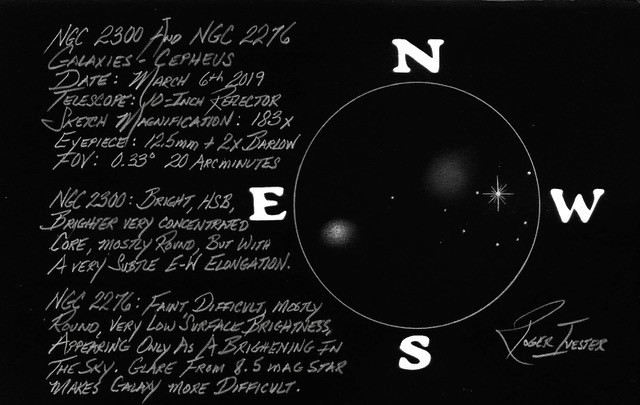 NGC 2300 And NGC 2276
Galaxies - Cepheus
Date: March 6th 2019
Telescope: 10-Inch Reflector
Sketch Magnification: 183x
Eyepiece: 12.5mm + 2x Barlow
FOV: 0.33° 20 Arcminutes
NGC 2300: Bright, HSB,
Brighter very concentrated
Core, mostly Round, But with
A very Subtle E-W Elongation.
NGC 2276: Faint Difficult, mostly
Round, very Low Surface Brightness,
Appearing Only As A Brighening In
The Sky. Glare From 8.5 mag Star
Makes Galaxy more Difficult.
N
E
W
S
Roger Ivester